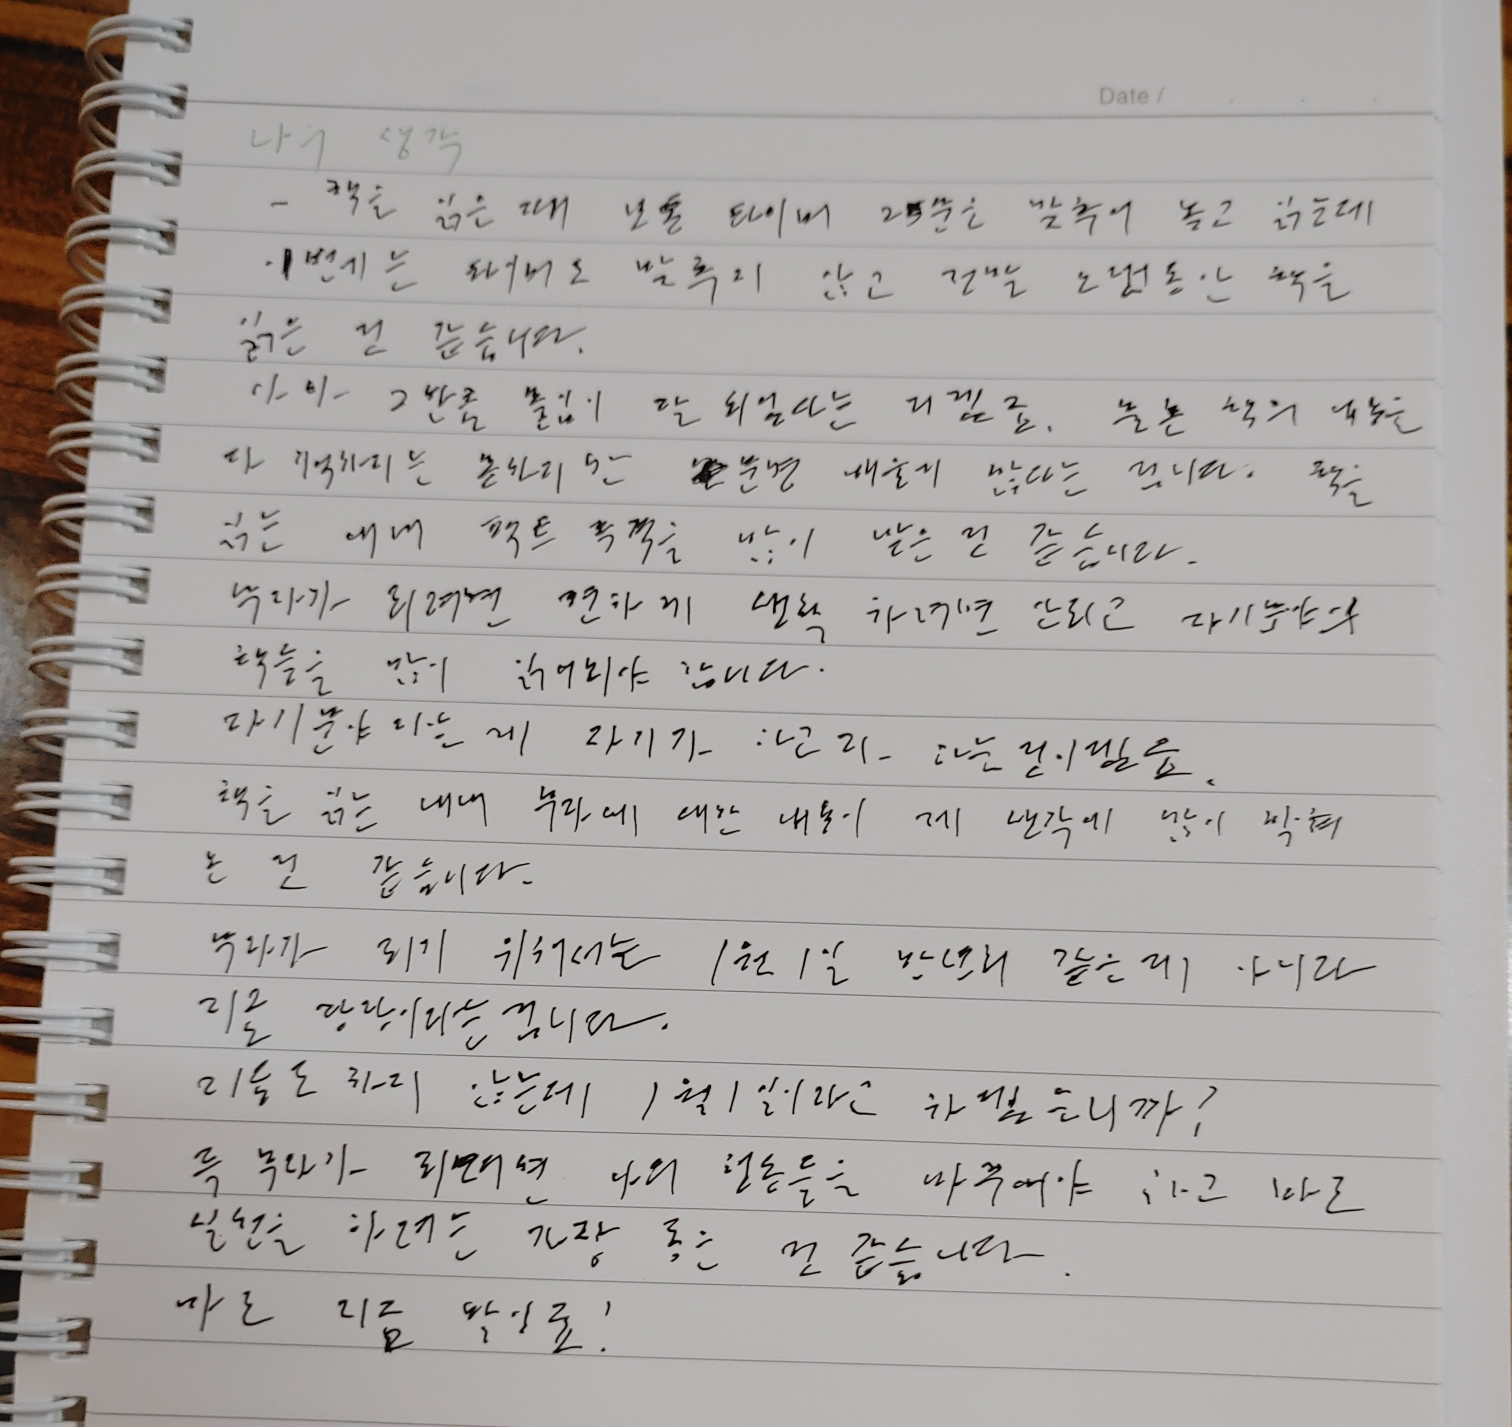 Date /
나의 생각
- 책을 읽은 때 보통 타이머 25분은 맞추어 놓고 읽는데
이번에는 타이머도 맞추지 않고 정말 오랫동안 책을
읽은 것 같습니다.
아마 그만큼 몰입이 잘 되었다는 거겠죠. 물론 책의 내용을
다 기억하지는 못하지만 분명 배울게 많다는 겁니다. 책을
읽는 내내 팩트 폭격을 많이 받은 것 같습니다.
부자가 되려면 편하게 생각 하려면 안되고 자기분야의
책들을 많이 읽어되야 합니다.
자기분야라는 게 자기가 하고자 하는 것이겠죠.
책을 읽는 내내 부자에 대한 내용이 제 생각에 많이 박혀
논 것 같습니다.
부자가 되기 위해서는 1월 1일 만보다 같은게 아니라
지금 당장이라는 겁니다.
지금도 하지 않는데 1월1일이라고 하겠습니까?
즉 부자가 되려면 나의 행동들을 바꾸어야 하고 바로
실천을 하려는 가장 좋은 것 같습니다.
바로 지금 말이죠!